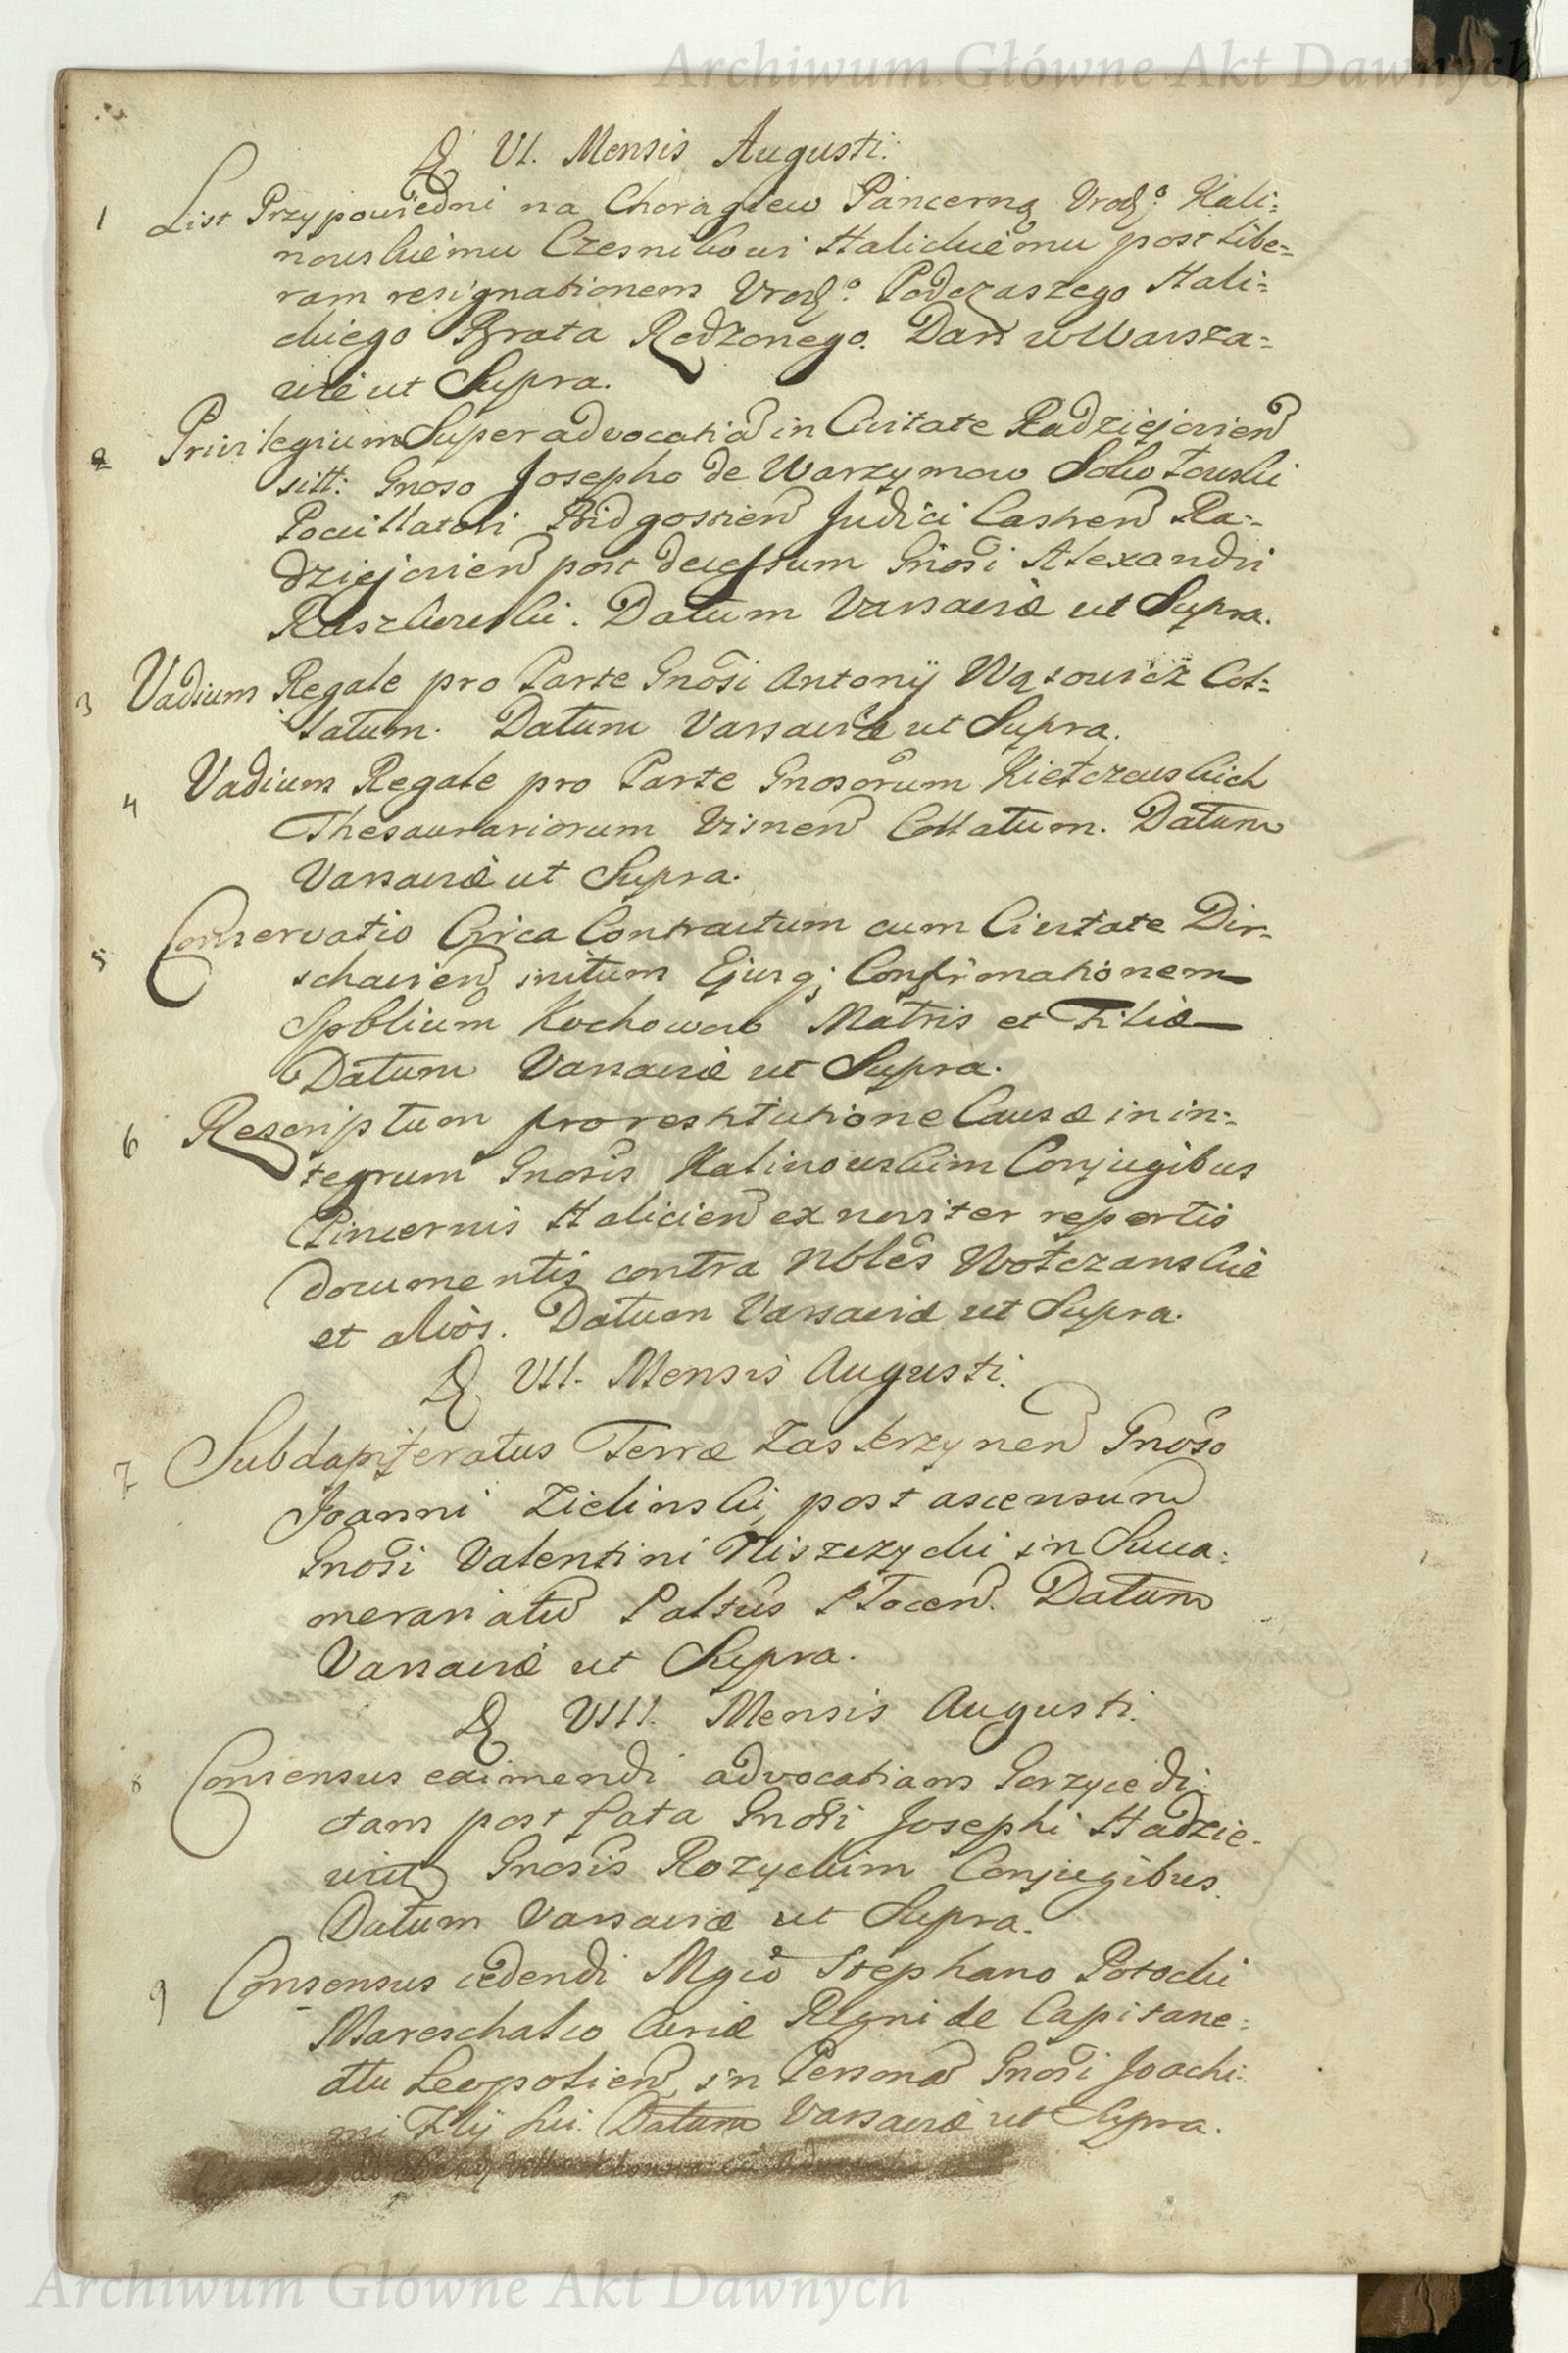 Archiwum Główne Akt Dawnych
D. VI. Mensis Augusti.
1 List Przypowiedni na Chorągiew Pancerną Urodz.o Kali=
nowskiemu Czesnikowi Halickiemu post libe=
ram resignationem Urodz.o Podczaszego Hali=
ckiego Brata Rodzonego. Dan w Warsza=
wie ut Supra.
2 Privilegium Super advocatia in Civitate Radziejovien
sitt: Gnoso Josepho de Warzymow Sokołowski
Pocillatori Bidgostien Judici Castren Ra=
dziejovien post decessum Gnosi Alexandri
Datum Varsaviæ ut Supra.
3 Vadium Regale pro Parte Gnosi Antonij Wąsowicz Col=
latum. Datum Varsaviæ ut Supra.
4 Vadium Regale pro Parte Gnosorum Kiełczewskich
Thesaurariorum Visnen Collatum. Datum
Varsaviæ ut Supra.
5 Conservatio Circa Contractum cum Civitate Dir=
schavien initum Ejusq; Confirmationem
Spblium Matris et Filiæ
Datum Varsaviæ ut Supra.
6 Rescriptum pro restitutione Causæ in in=
tegrum Gnosis Kalinowskim Conjugibus
Pincernis Halicien ex noviter repertis
documentis contra Nbles Wołczanskie
et alios. Datum Varsaviæ ut Supra.
D. VII. Mensis Augusti.
7 Subdapiferatus Terræ Zaskrzynen Gnoso
Joanni Zielinski, post ascensum
Gnosi Valentini Niszczycki in Succa=
merariatū Paltūs Płocen. Datum
Varsaviæ ut Supra.
D. VIII. Mensis Augusti.
8 Consensus eximendi advocatiam Gorzyce di=
ctam post fata Gnosi Josephi Hadzie=
wicz Gnosis Rozyckim Conjugibus.
Datum Varsaviæ ut Supra.
9 Consensus cedendi Mgco Stephano Potocki
Mareschalco Curiæ Regni de Capitane=
atu Leopolien in Personam Gnosi Joachi=
mi Filij sui. Datum Varsaviæ ut Supra.
Archiwum Główne Akt Dawnych